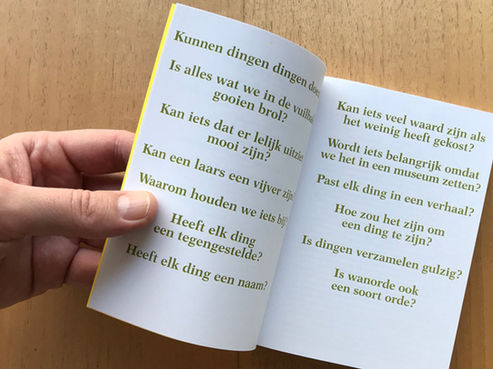 Kunnen dingen dingen doen
Is alles wat we in de
gooien brol?
Kan iets dat er lelijk uitziet
mooi zijn?
Kan een laars een vijver zijn?
Waarom houden we iets bij?
Heeft elk ding
een tegengestelde?
Heeft elk ding een naam?
Kan iets veel waard zijn als
het weinig heeft gekost?
Wordt iets belangrijk omdat
we het in een museum zetten?
Past elk ding in een verhaal?
Hoe zou het zijn om
een ding te zijn?
Is dingen verzamelen gulzig?
Is wanorde ook
een soort orde?